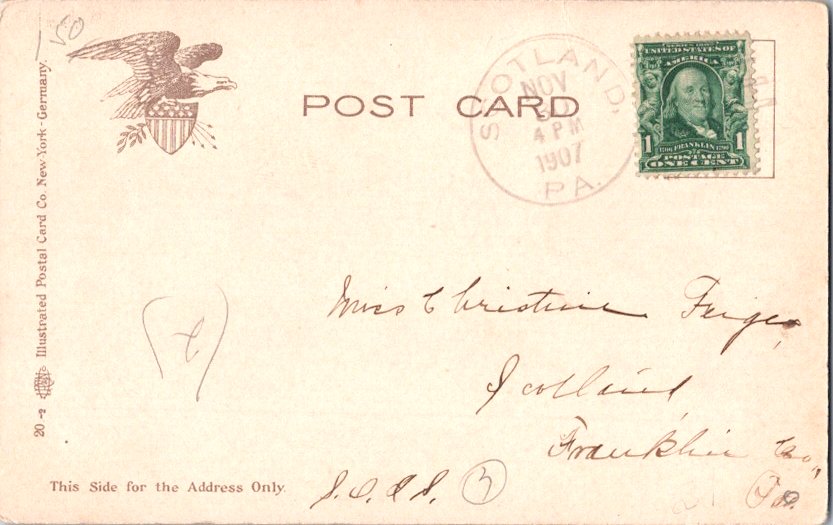 50
POST CARD
SCOTLAND,
NOV
4 PM
1907
PA.
SERIES 1902
UNITED STATES OF
AMERICA
1 1706 FRANKLIN 1790 1
POSTAGE
ONE CENT
20-2 Illustrated Postal Card Co. New-York-Germany.
Miss Christine
Scotland
Franklin Co.,
Pa.
This Side for the Address Only.